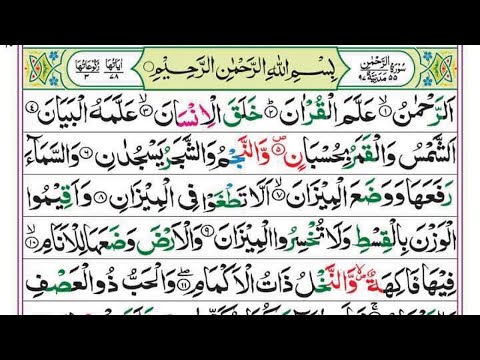 سُوْرَةُ الرَّحْمٰنِ ٥٥ مَدَنِيَّةٌ ٩٧
بِسْمِ اللّٰهِ الرَّحْمٰنِ الرَّحِيْمِ
اٰیَاتُهَا ٧٨ رُكُوْعَاتُهَا ٣
اَلرَّحْمٰنُ ۙ﴿۱﴾ عَلَّمَ الْقُرْاٰنَ ؕ﴿۲﴾ خَلَقَ الْاِنْسَانَ ۙ﴿۳﴾ عَلَّمَهُ الْبَيَانَ ﴿۴﴾
اَلشَّمْسُ وَالْقَمَرُ بِحُسْبَانٍ ۪﴿۵﴾ وَّالنَّجْمُ وَالشَّجَرُ يَسْجُدٰنِ ﴿۶﴾ وَالسَّمَآءَ
رَفَعَهَا وَوَضَعَ الْمِيْزَانَ ۙ﴿۷﴾ اَلَّا تَطْغَوْا فِى الْمِيْزَانِ ﴿۸﴾ وَاَقِيْمُوا
الْوَزْنَ بِالْقِسْطِ وَلَا تُخْسِرُوا الْمِيْزَانَ ﴿۹﴾ وَالْاَرْضَ وَضَعَهَا لِلْاَنَامِ ۙ﴿۱۰﴾
فِيْهَا فَاكِهَةٌ ۪ۙ وَّالنَّخْلُ ذَاتُ الْاَكْمَامِ ۖ﴿۱۱﴾ وَالْحَبُّ ذُو الْعَصْفِ